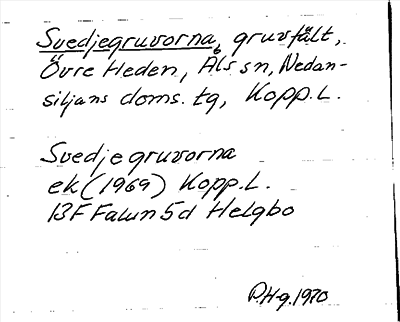 Svedjegruvorna, gruvfält,
Övre Heden, Als sn, Nedan-
siljans doms. tg, Kopp. L.
Svedjegruvorna
ek (1969) Kopp. L.
13F Falun 5d Helgbo
P.Hg. 1970